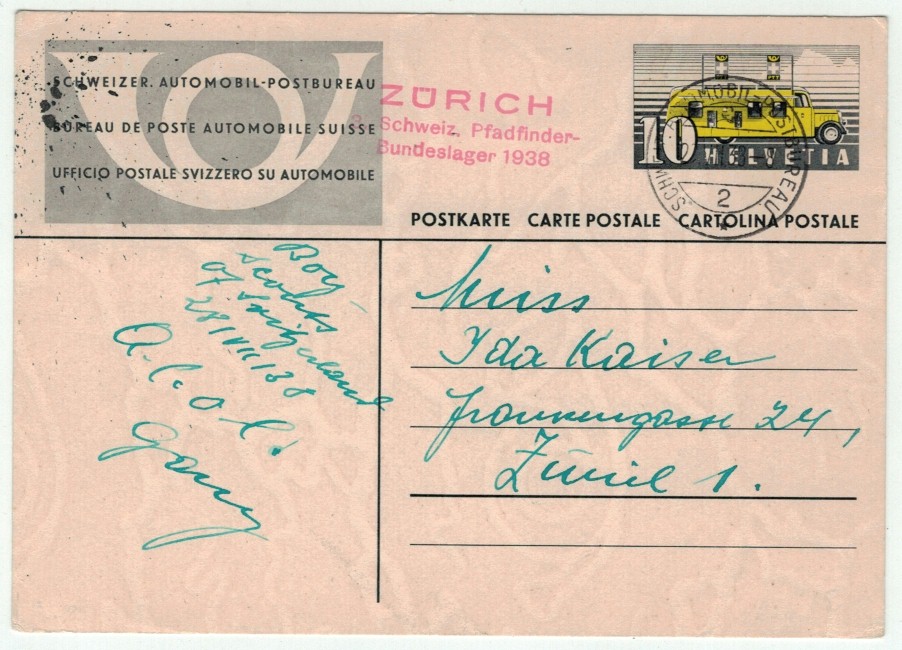 SCHWEIZER. AUTOMOBIL-POSTBUREAU
BUREAU DE POSTE AUTOMOBILE SUISSE
UFFICIO POSTALE SVIZZERO SU AUTOMOBILE
ZÜRICH
Schweiz. Pfadfinder-
Bundeslager 1938
10 HELVETIA
AUTOMOBIL-POSTBUREAU
2
POSTKARTE CARTE POSTALE CARTOLINA POSTALE
Boy
scouts
of
28 VII 38
Miss
Ida Kaiser
24,
1.